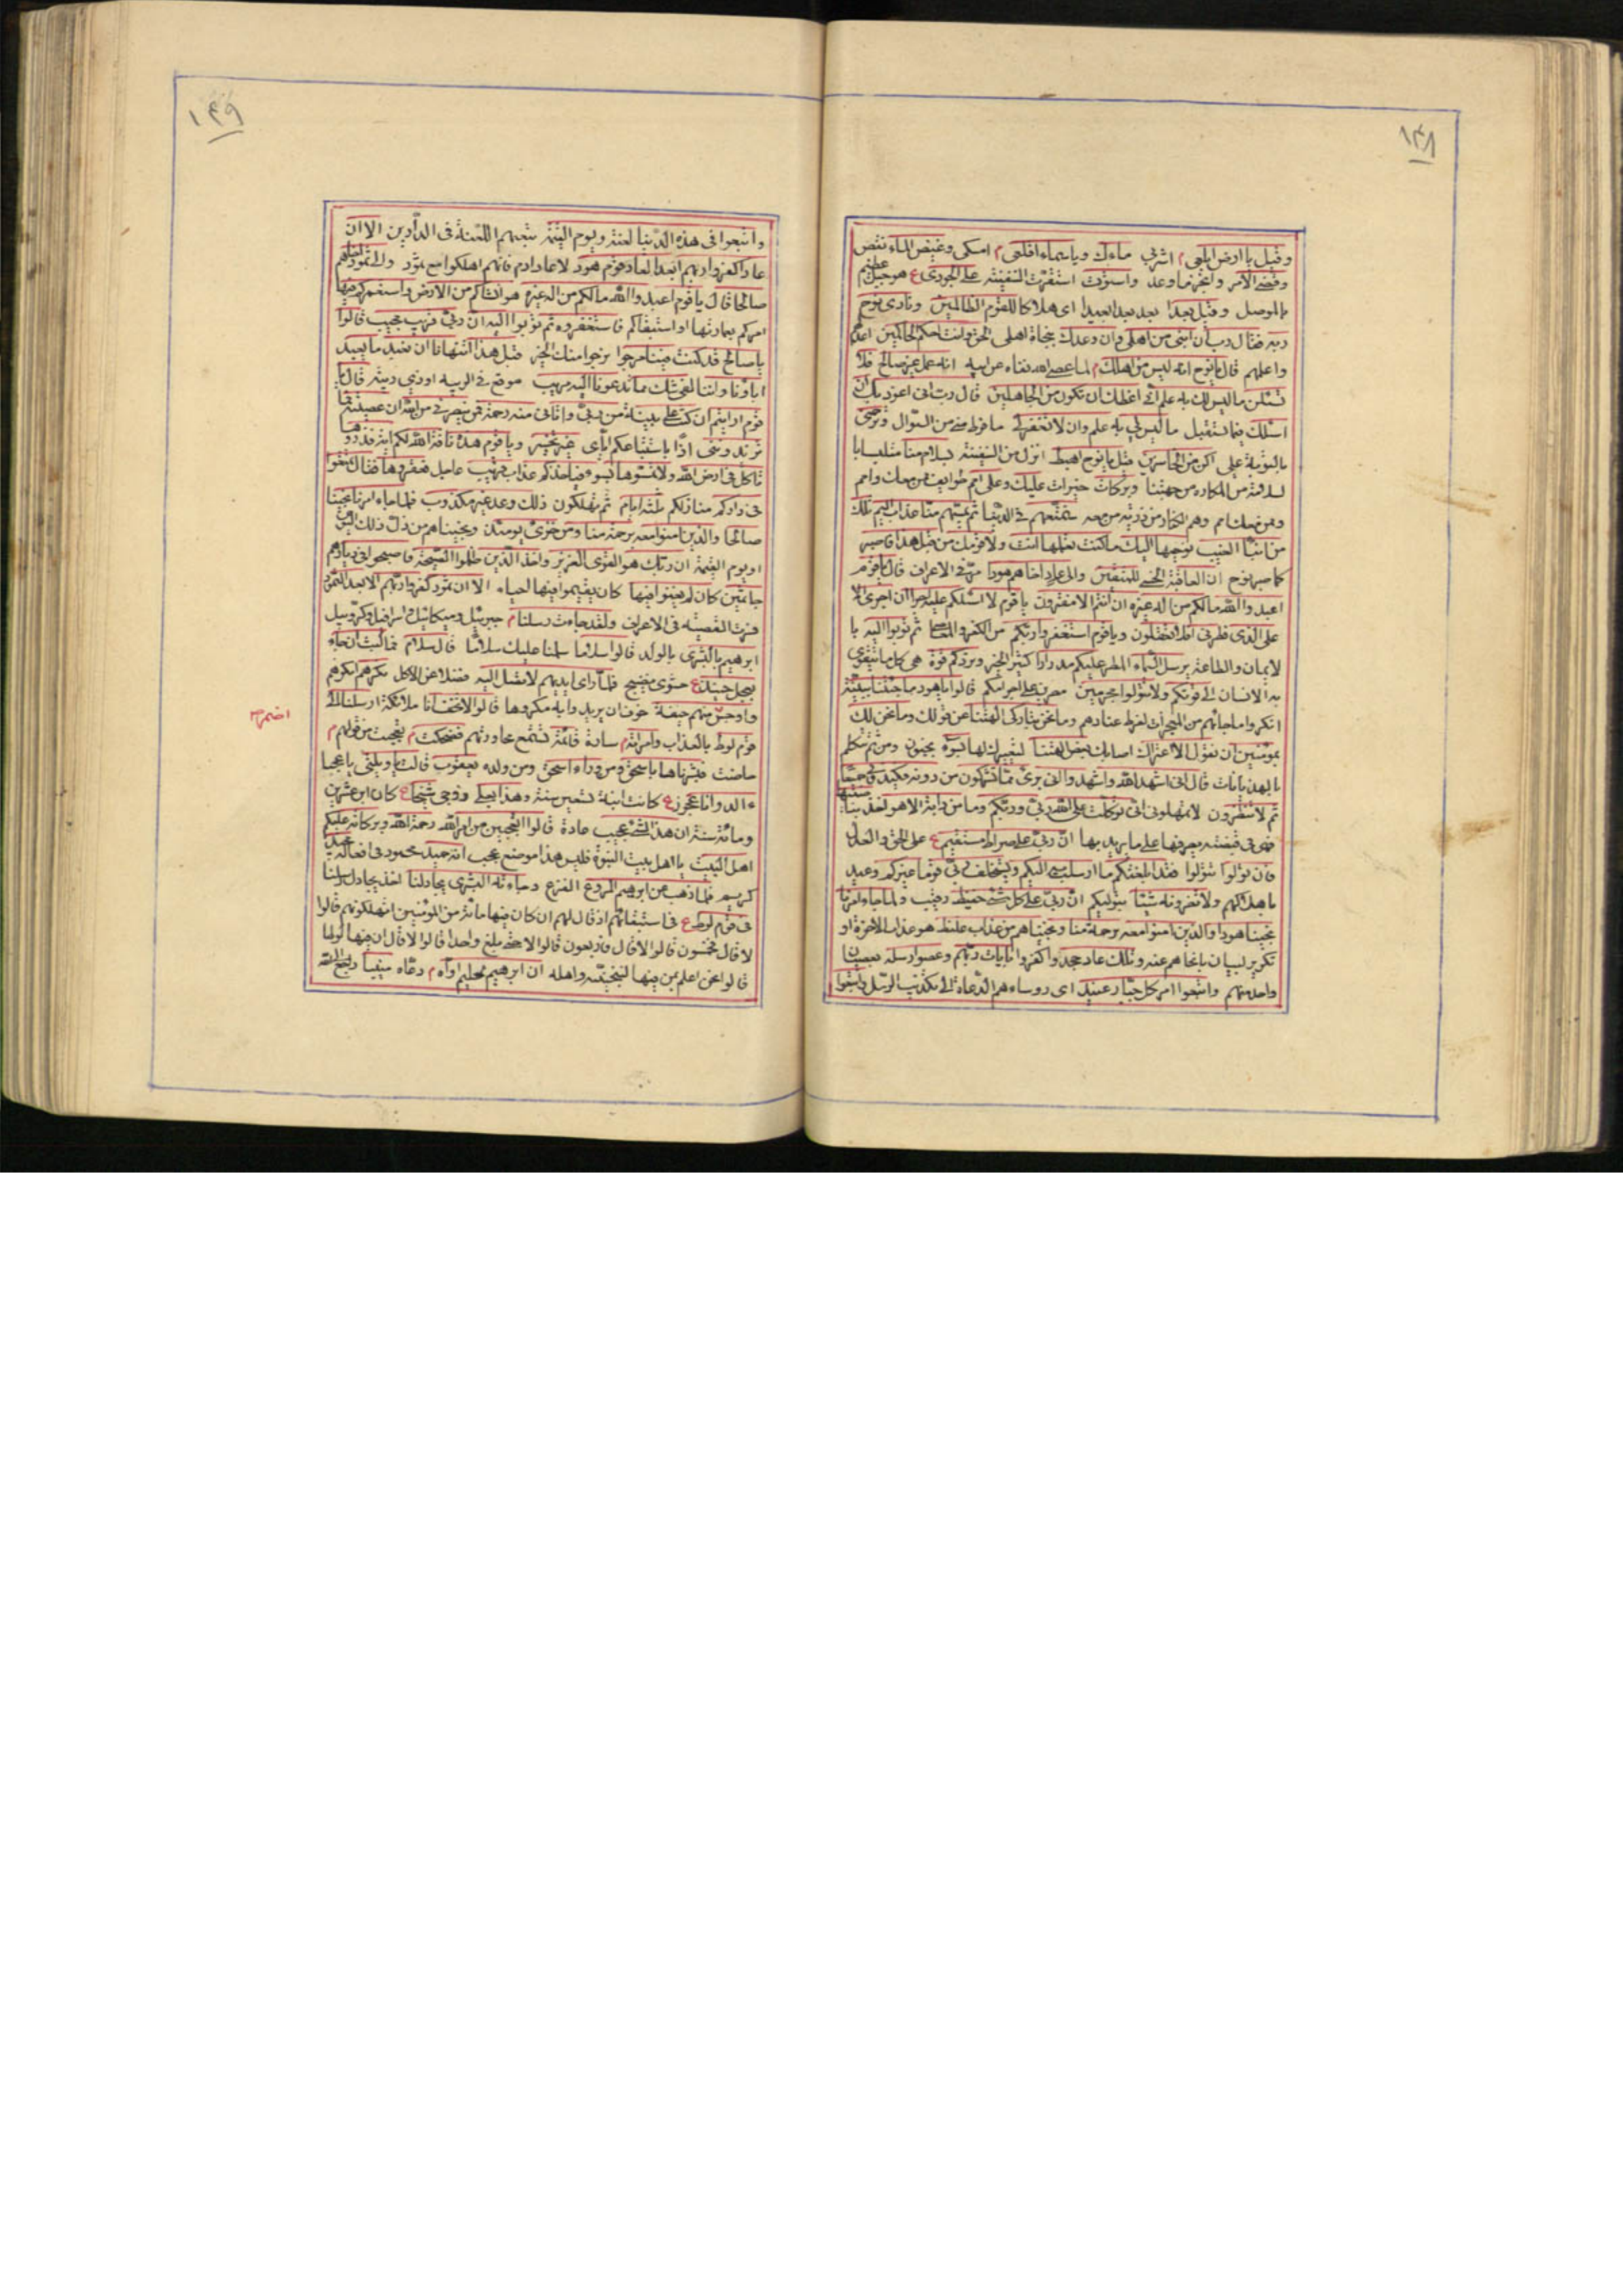 ١٣٨
وقيل يا ارض ابلعى م اشربى ماءك ويا سماء اقلعى م امسكى وغيض الماء نقص
وقضى الامر وانجز ما وعد واستوت استقرت السفينة على الجودى ع هو جبل عظيم
بالموصل وقيل بعدا بعد بعدا بعيدا اى هلاكا للقوم الظالمين ونادى نوح
ربه فقال رب ان ابنى من اهلى وان وعدك بنجاة اهلى الحق وانت احكم الحاكمين اعدلهم
واعلمهم قال يا نوح انه ليس من اهلك م لما عصى الله نفاه عن ابيه انه عمل غير صالح فلا
تسئلن ما ليس لك به علم انى اعظك ان تكون من الجاهلين قال رب انى اعوذ بك ان
اسئلك فيما يستقبل ما ليس لى به علم وان لا تغفر لى ما فرط منى من السؤال وترحمنى
بالتوبة على اكن من الخاسرين قيل يا نوح اهبط انزل من السفينة بسلام منا متلبسا با
لسلامة من المكاره من جهتنا وبركات خيرات عليك وعلى امم طوايف ممن معك وامم
وممن معك امم وهم الكفار من ذريته من معه سنمتعهم فى الدنيا ثم يمسهم منا عذاب اليم تلك
من انباء الغيب نوحيها اليك ما كنت تعلمها انت ولا قومك من قبل هذا فاصبر
كما صبر نوح ان العاقبة الحسنى للمتقين والى عاد اخاهم هودا مر فى الاعراف قال يا قوم
اعبدوا الله ما لكم من اله غيره ان انتم الا مفترون يا قوم لا اسئلكم عليه اجرا ان اجرى الا
على الذى فطرنى افلا تعقلون ويا قوم استغفروا ربكم من الكفر والمعاصى ثم توبوا اليه با
لايمان والطاعة يرسل السماء المطر عليكم مدرارا كثير الخير ويزدكم قوة هى كل ما يتقوى
به الانسان الى قوتكم ولا تتولوا مجرمين مصرين على اجرامكم قالوا يا هود ما جئتنا ببينة
انكروا ما جائهم من المعجزات لفرط عنادهم وما نحن بتاركى الهتنا عن قولك وما نحن لك
بمؤمنين ان نقول الا اعتراك اصابك بعض الهتنا لسبك لها بسوء بجنون ومن ثم تتكلم
بالهذيانات قال انى اشهد الله واشهدوا انى برئ مما تشركون من دونه فكيدونى جميعا
ثم لا تنظرون لا تمهلونى انى توكلت على الله ربى وربكم وما من دابة الا هو اخذ بناصيتها
فهى فى قبضته يصرفها على ما يريد بها ان ربى على صراط مستقيم ع على الحق والعدل
فان تولوا تتولوا فقد ابلغتكم ما ارسلت به اليكم ويستخلف ربى قوما غيركم وعيد
باهلاكهم ولا تضرونه شيئا بتوليكم ان ربى على كل شئ حفيظ رقيب ولما جاء امرنا
نجينا هودا والذين امنوا معه برحمة منا ونجيناهم من عذاب غليظ هو عذاب الاخرة او
تكرير لبيان ما نجاهم عنه وتلك عاد جحدوا كفروا بايات ربهم وعصوا رسله بعصيان
واحد منهم واتبعوا امر كل جبار عنيد اى رؤساءهم الدعاة الى تكذيب الرسل واتبعوا
١٣٩
واتبعوا فى هذه الدنيا لعنة ويوم القيمة تتبعهم اللعنة فى الدارين الا ان
عادا كفروا ربهم الا بعدا لعاد قوم هود لا عاد ارم فانهم اهلكوا مع ثمود والى ثمود اخاهم
صالحا قال يا قوم اعبدوا الله ما لكم من اله غيره هو انشاكم من الارض واستعمركم فيها
امركم بعمارتها او استبقاكم فاستغفروه ثم توبوا اليه ان ربى قريب مجيب قالوا
يا صالح قد كنت فينا مرجوا نرجوا منك الخير قبل هذا اتنهانا ان نعبد ما يعبد
اباؤنا واننا لفى شك مما تدعونا اليه مريب موقع فى الريبة او ذى ريبة قال يا
قوم ارايتم ان كنت على بينة من ربى واتانى منه رحمة فمن ينصرنى من الله ان عصيته فما
تزيدوننى اذا باستتباعكم اياى غير تخسير ويا قوم هذه ناقة الله لكم اية فذروها
تاكل فى ارض الله ولا تمسوها بسوء فياخذكم عذاب قريب عاجل فعقروها فقال تمتعوا
فى داركم منازلكم ثلثة ايام ثم تهلكون ذلك وعد غير مكذوب فلما جاء امرنا نجينا
صالحا والذين امنوا معه برحمة منا ومن خزى يومئذ ونجيناهم من ذل ذلك اليوم
او يوم القيمة ان ربك هو القوى العزيز واخذ الذين ظلموا الصيحة فاصبحوا فى ديارهم
جاثمين كان لم يغنوا فيها كان يقيموا فيها احياء الا ان ثمود كفروا ربهم الا بعدا لثمود
مرت القصة فى الاعراف ولقد جاءت رسلنا م جبرئيل وميكائيل واسرافيل وكروبيل
ابرهيم بالبشرى بالولد قالوا سلاما سلمنا عليك سلاما قال سلام فما لبث ان جاء
بعجل حنيذ ع مشوى نضيج فلما راى ايديهم لا تصل اليه فضلا عن الاكل نكرهم انكرهم
واوجس منهم خيفة خوف ان يريدوا به مكروها قالوا لا تخف انا ملائكة ارسلنا الى
قوم لوط بالعذاب وامراته م سارة قائمة تستمع محاورتهم فضحكت م تعجبت من قولهم م
حاضت فبشرناها باسحق ومن وراء اسحق ومن ولده يعقوب قالت يا ويلتى يا عجبا
ءالد وانا عجوز ع كانت ابنة تسعين سنة وهذا بعلى زوجى شيخا ع كان ابن عشرين
ومائة سنة ان هذا لشئ عجيب عادة قالوا اتعجبين من امر الله رحمة الله وبركاته عليكم
اهل البيت يا اهل بيت النبوة فليس هذا موضع عجب انه حميد محمود فى افعاله مجيد
كريم فلما ذهب عن ابرهيم الروع الفزع وجاءته البشرى يجادلنا اخذ يجادل رسلنا
فى قوم لوط ع فى استبقائهم اذ قال لهم ان كان فيها مائة من المؤمنين اتهلكونهم قالوا
لا قال فخمسون قالوا لا قال فاربعون قالوا لا حتى بلغ واحدا قالوا لا قال ان فيها لوطا
قالوا نحن اعلم بمن فيها لننجينه واهله ان ابرهيم لحليم اواه م دعاء منيبا راجع الى الله